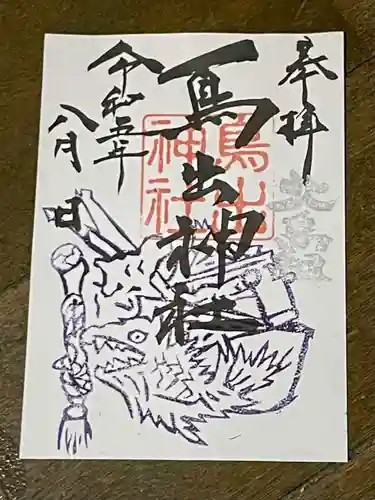 奉拝
鳥出神社
鳥出
神社
令和五年
八月 日